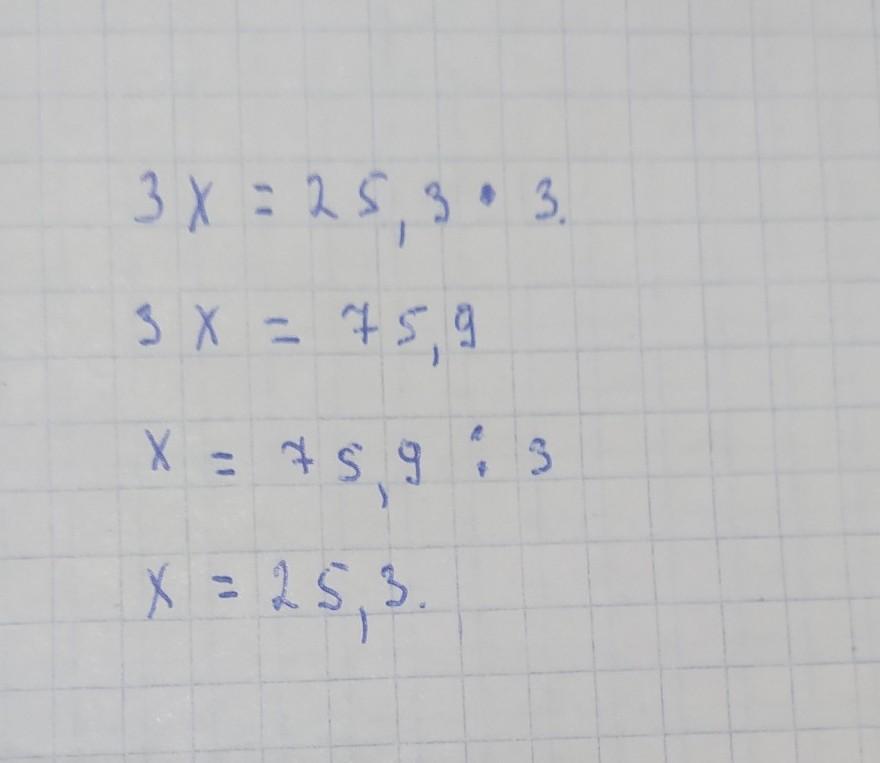 3x = 25,3 · 3.
3x = 75,9
x = 75,9 : 3
x = 25,3.